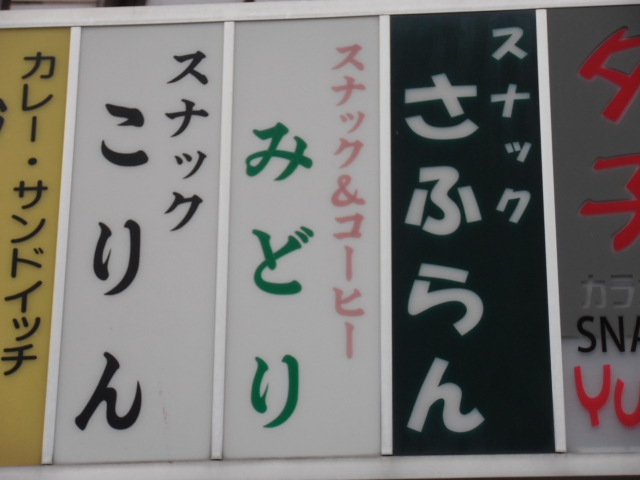 カレー・サンドイッチ
スナック
こりん
スナック&コーヒー
みどり
スナック
さふらん
カラ
SNA
YU